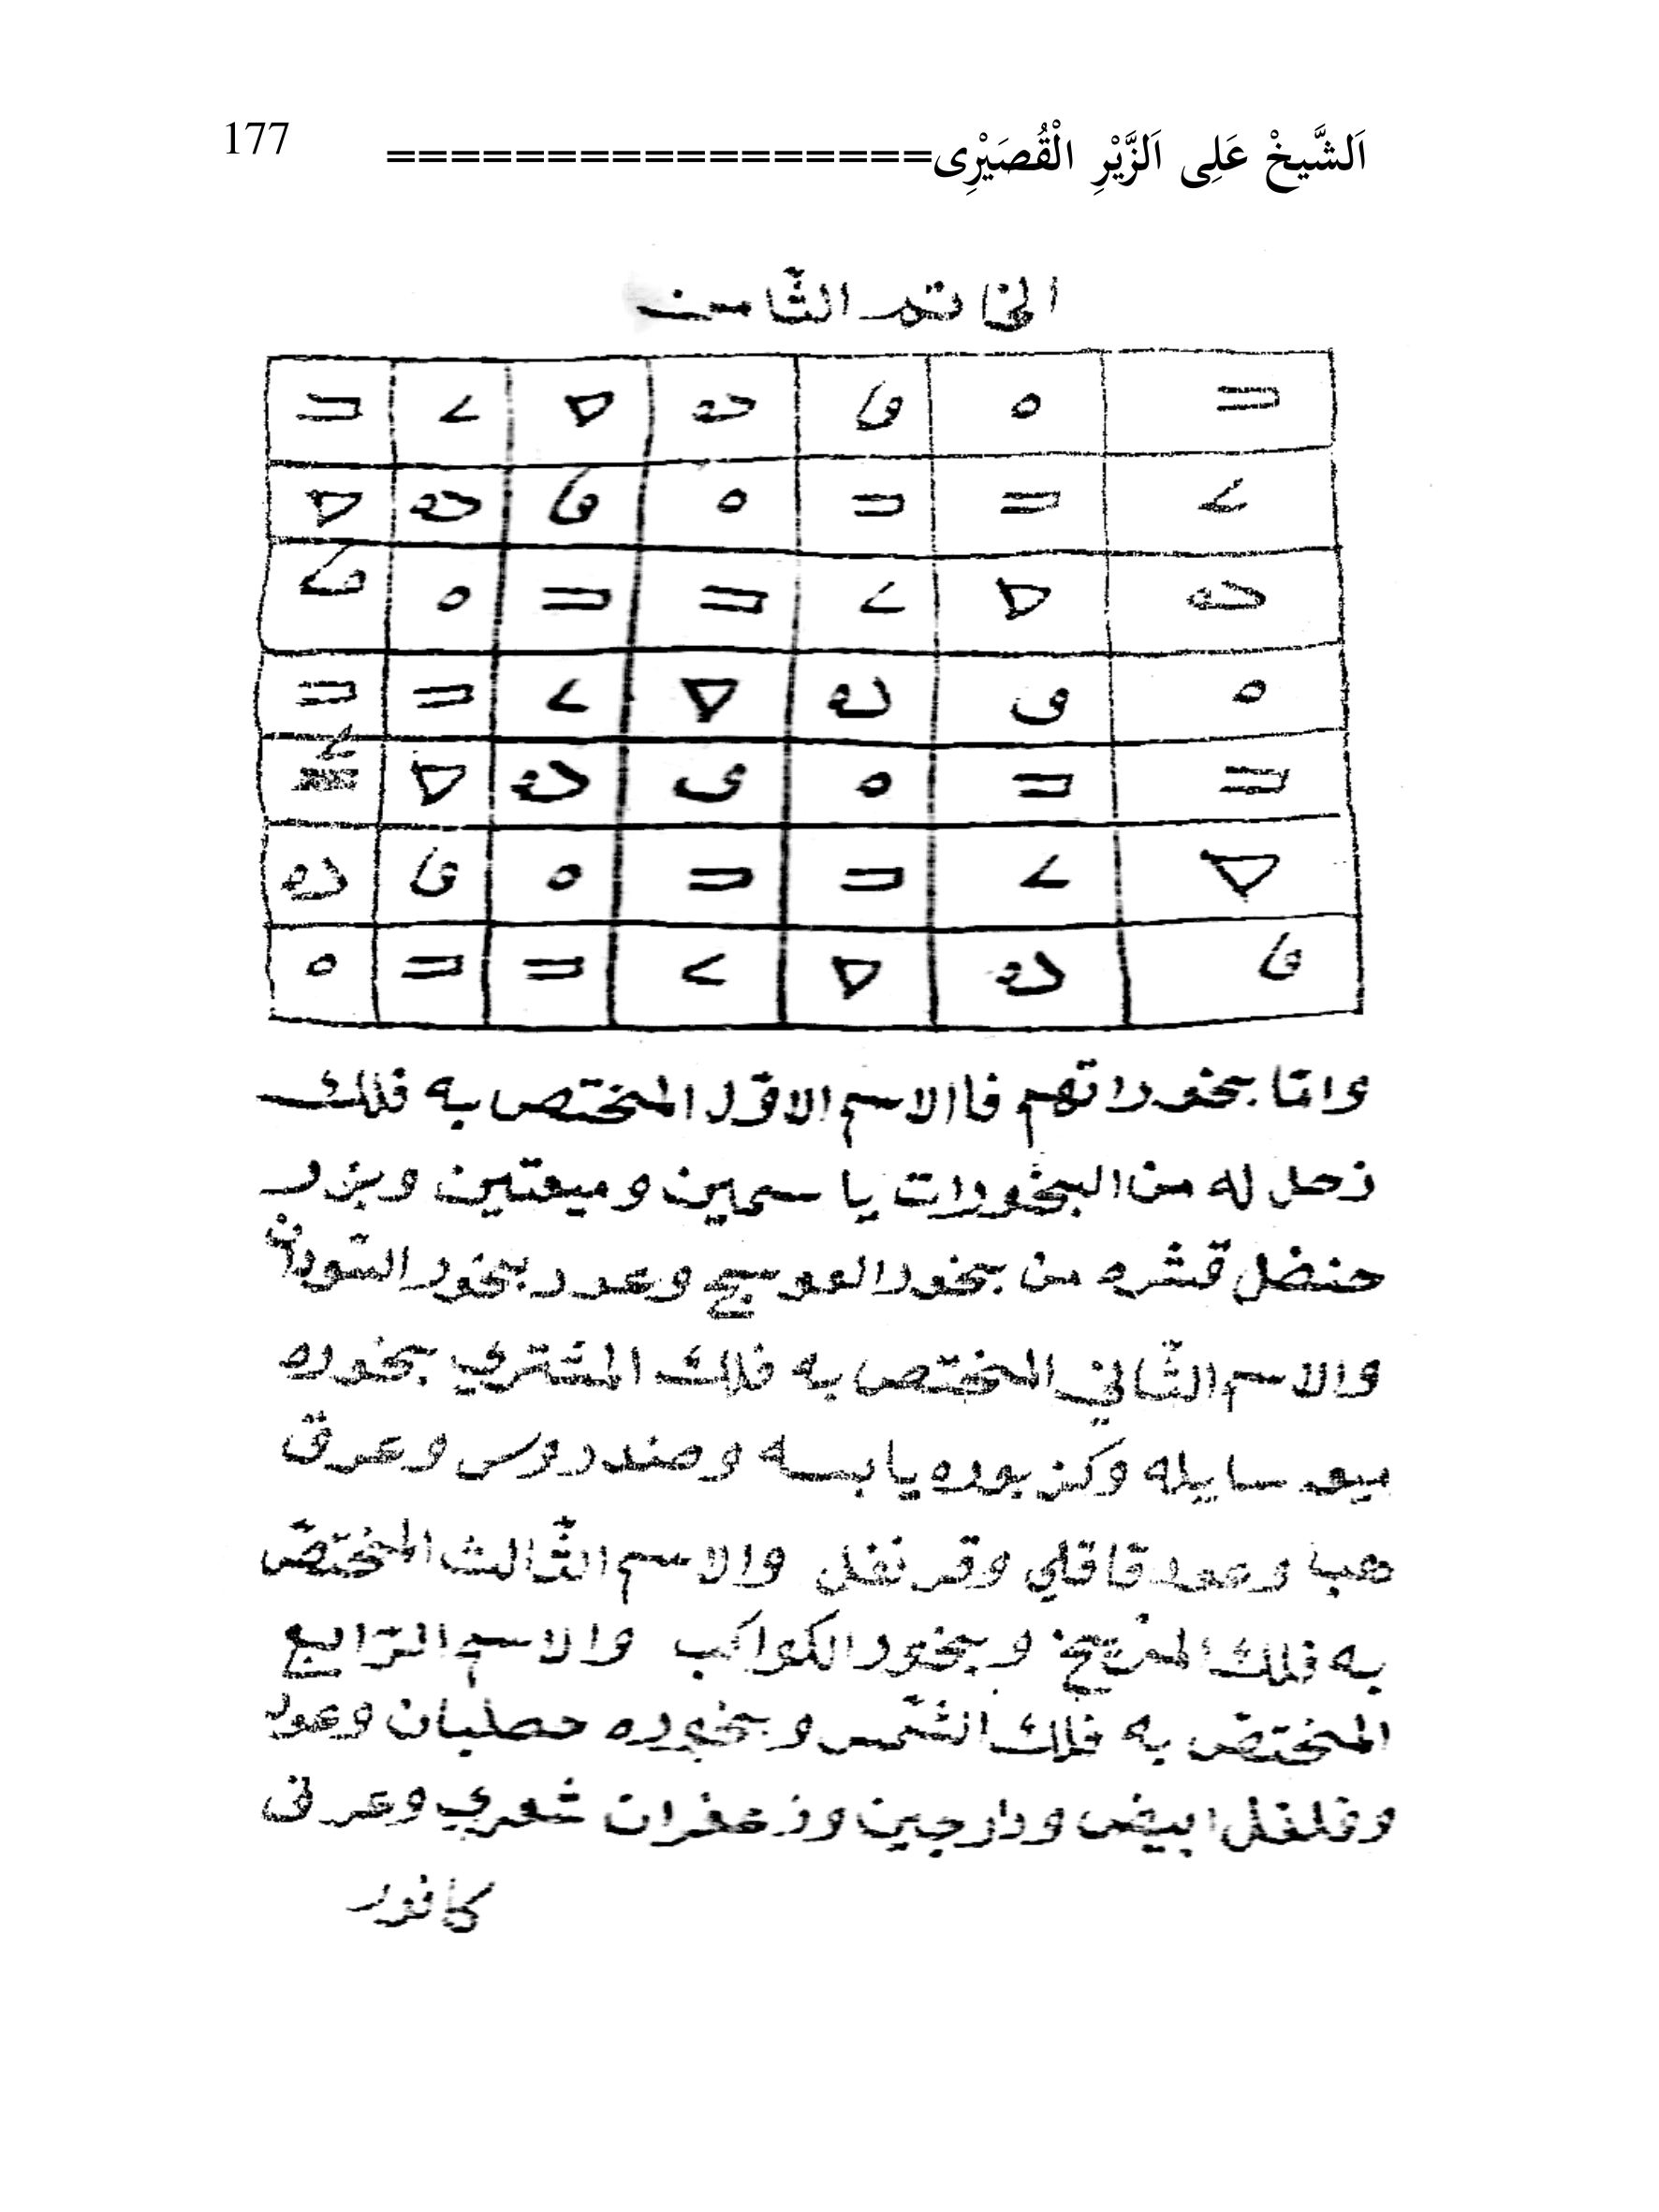 اَلشَّيخْ عَلِى اَلزَّيْرِ الْقُصَيْرِى================= 177
الخاتم الثامن
وامّا بخوراتهم فاالاسم الاوّل المختص به فلك
زحل له من البخورات ياسمين وميعتين وبزر
حنضل قشره من بخور العوسج وعود بخور السّودان
والاسم الثّاني المختص به فلك المشتري بخوره
ميعه سايله وكزبوره يابسه وصندروس وعرق
هبا وعود قاقلي وقرنفل والاسم الثّالث المختصّ
به فلك المرّيخ وبخور الكواكب والاسم الرّابع
المختصّ به فلك الشّمس وبخوره حصلبان وعود
وفلفل ابيض ودارجين وزعفران شعري وعرق
كافور